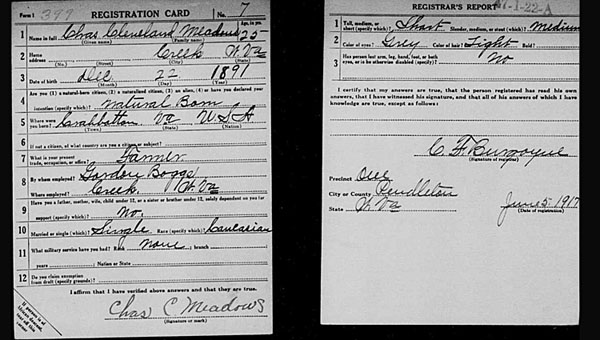 Form 1 397 REGISTRATION CARD No. 7
1 Name in full Chas Cleveland Meadows Age, in yrs. 25
(Given name) (Family name)
2 Home address Creek W. Va
(No.) (Street) (City) (State)
3 Date of birth Dec 22 1891
(Month) (Day) (Year)
4 Are you (1) a natural-born citizen, (2) a naturalized citizen, (3) an alien, (4) or have you declared your
intention (specify which)? Natural Born
5 Where were you born? Va U S A
(Town) (State) (Nation)
6 If not a citizen, of what country are you a citizen or subject?
7 What is your present trade, occupation, or office? Farmer
8 By whom employed? Gordon Boggs
Where employed? Creek, W. Va
9 Have you a father, mother, wife, child under 12, or a sister or brother under 12, solely dependent on you for
support (specify which)? No.
10 Married or single (which)? Single Race (specify which)? Caucasian
11 What military service have you had? Rank None ; branch
years ; Nation or State
12 Do you claim exemption from draft (specify grounds)?
I affirm that I have verified above answers and that they are true.
Chas C Meadows
(Signature or mark)
REGISTRAR'S REPORT 1-22-A
1 Tall, medium, or short (specify which)? Short Slender, medium, or stout (which)? Medium
2 Color of eyes? Grey Color of hair? Light Bald?
3 Has person lost arm, leg, hand, foot, or both eyes, or is he otherwise disabled (specify)? No
I certify that my answers are true, that the person registered has read his own
answers, that I have witnessed his signature, and that all of his answers of which I have
knowledge are true, except as follows:
(Signature of registrar)
Precinct
City or County Pendleton
State W. Va
June 5. 1917
(Date of registration)